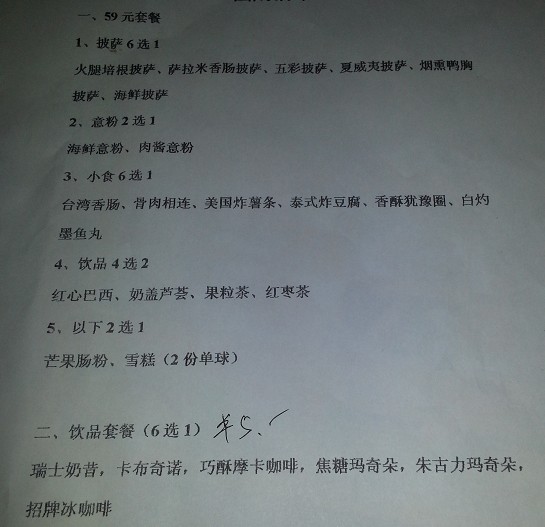 一、59 元套餐
1、披萨 6 选 1
火腿培根披萨、萨拉米香肠披萨、五彩披萨、夏威夷披萨、烟熏鸭胸
披萨、海鲜披萨
2、意粉 2 选 1
海鲜意粉、肉酱意粉
3、小食 6 选 1
台湾香肠、骨肉相连、美国炸薯条、泰式炸豆腐、香酥犹豫圈、白灼
墨鱼丸
4、饮品 4 选 2
红心巴西、奶盖芦荟、果粒茶、红枣茶
5、以下 2 选 1
芒果肠粉、雪糕（2 份单球）
二、饮品套餐（6 选 1）
瑞士奶昔，卡布奇诺，巧酥摩卡咖啡，焦糖玛奇朵，朱古力玛奇朵，
招牌冰咖啡